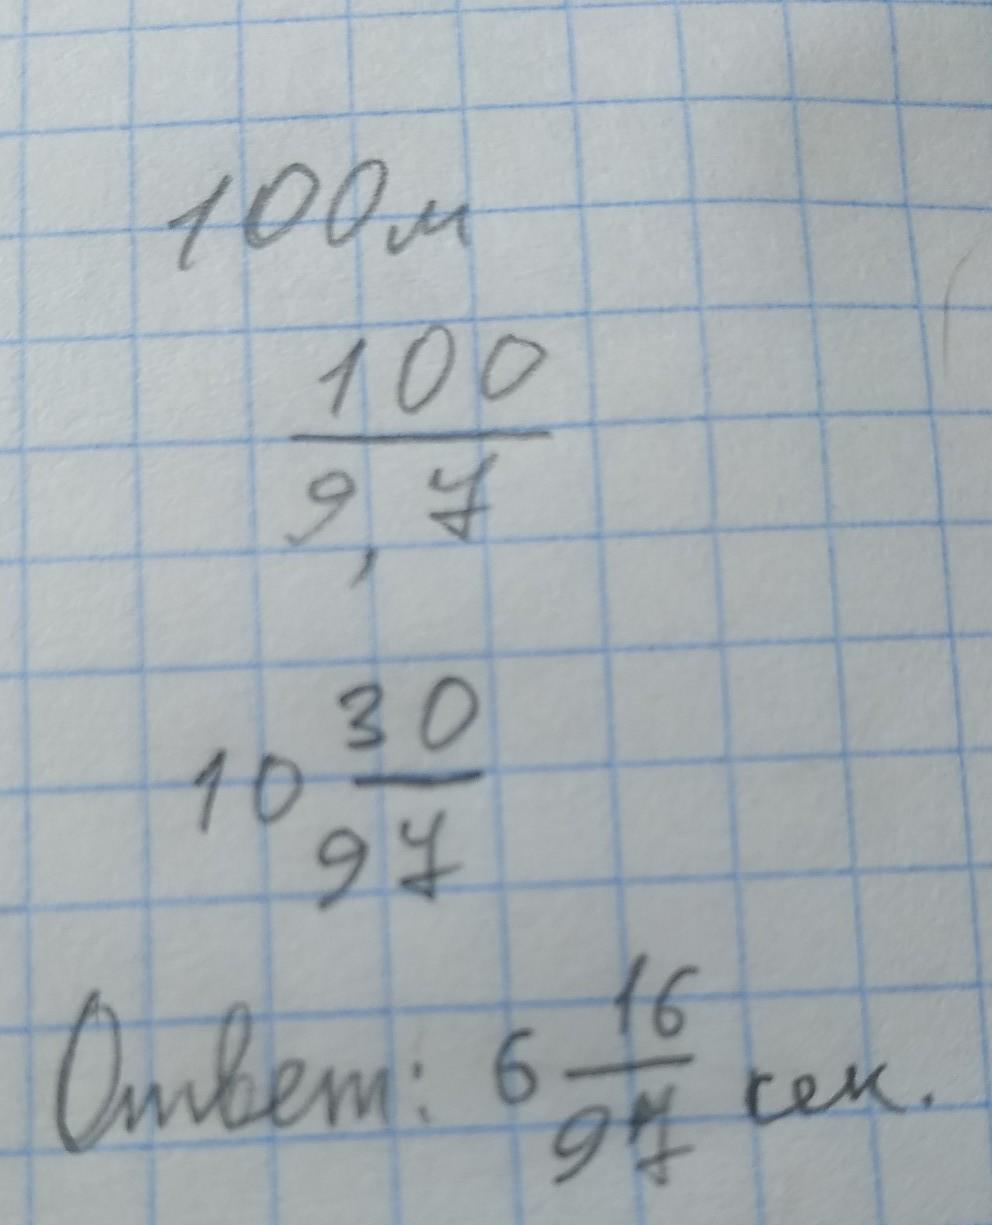 100м
100
9,7
10 30/97
Ответ: 6 16/97 сек.